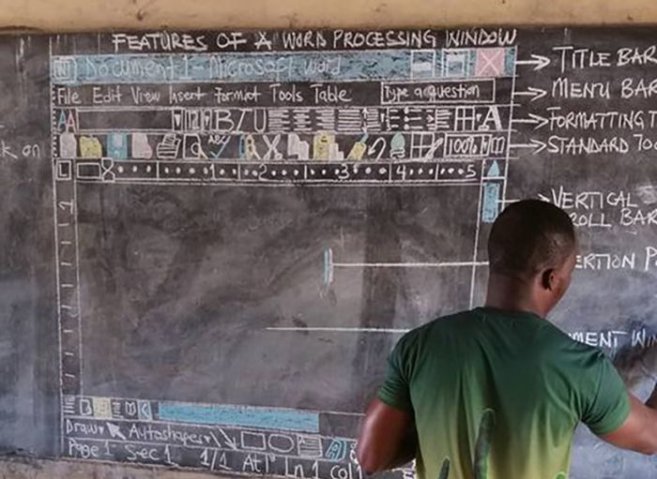 FEATURES OF A WORD PROCESSING WINDOW
W Document 1 - Microsoft Word
TITLE BAR
File Edit View Insert Format Tools Table
Type a question
MENU BAR
AA 12 B I U A
FORMATTING T
ABC 100%
STANDARD TOO
k on
1 2 3 4 5
VERTICAL
ROLL BAR
ERTION P
MENT WIN
Draw Autoshapes
Page 1 Sec 1 1/1 At Ln 1 Col